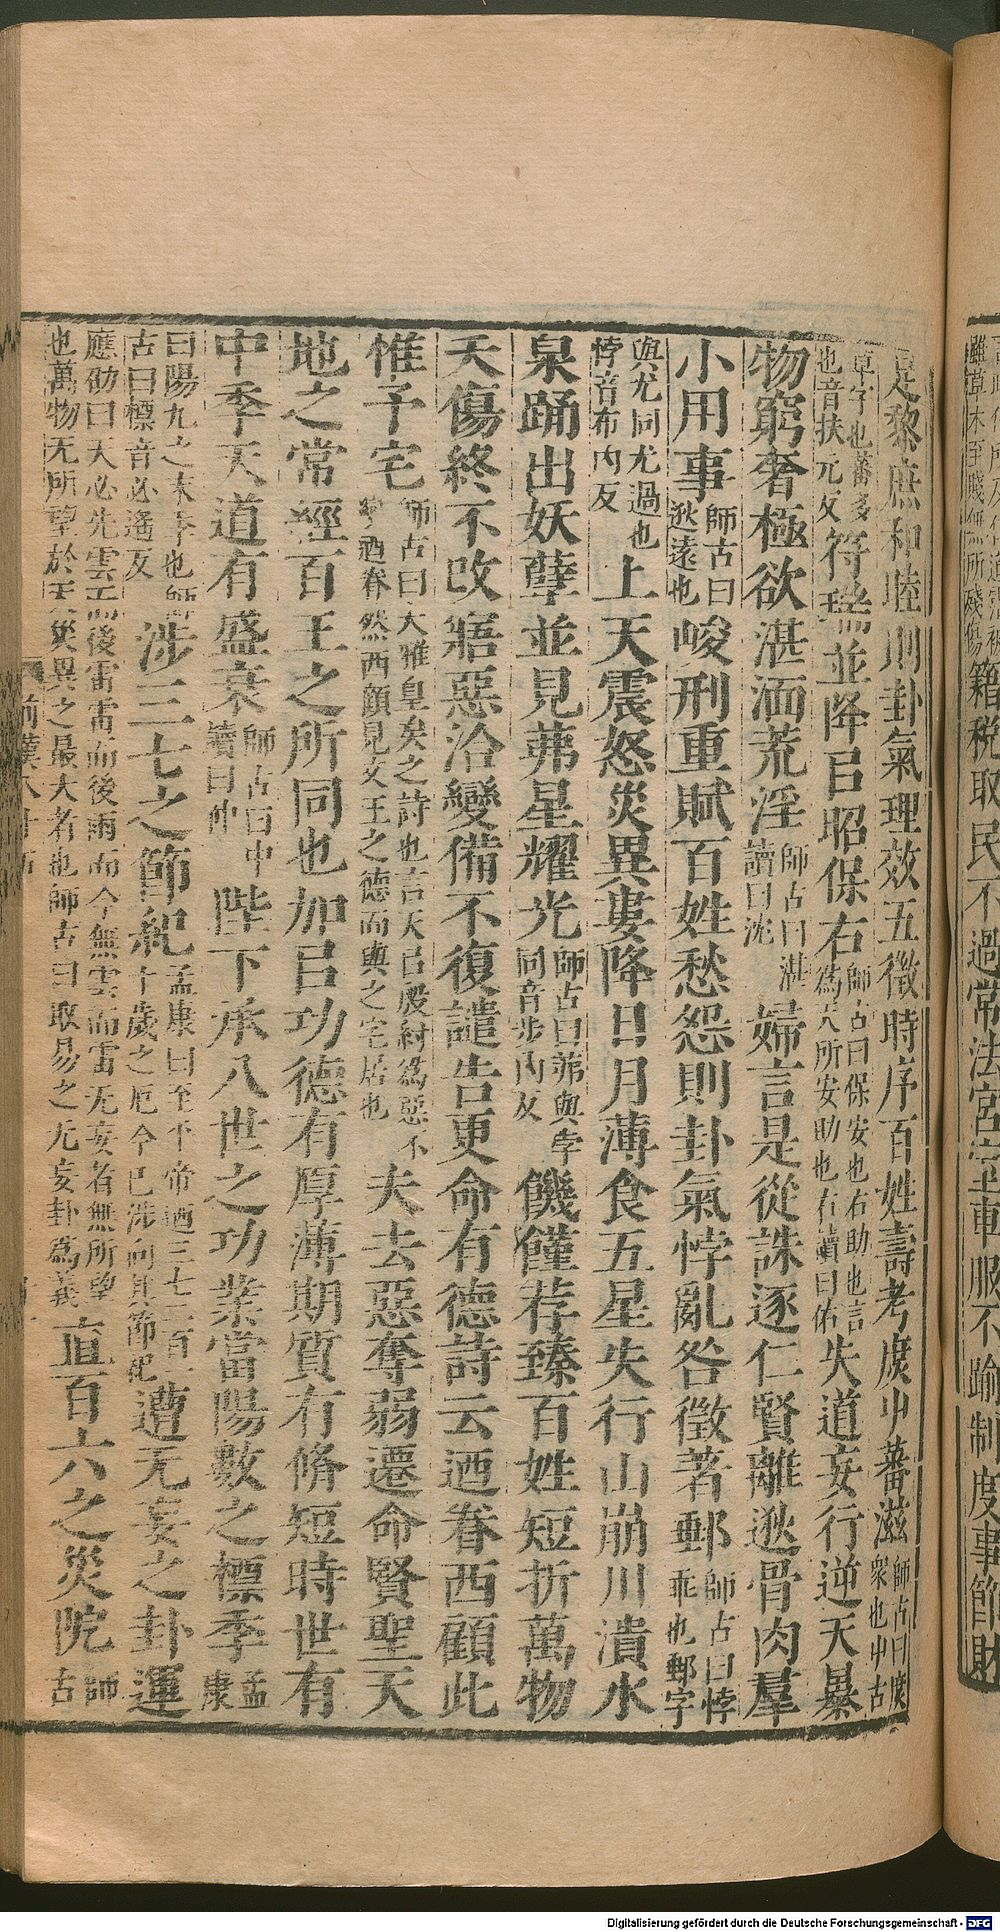 雖草木至賤無所殘傷籍稅取民不過常法宮室車服不踰制度事節財
足黎庶和睦則卦氣理效五徵時序百姓壽考庶屮蕃滋師古曰庶衆也屮古
草字也蕃多也音扶元反符瑞並降㠯昭保右師古曰保安也右助也言為天所安助也右讀曰佑失道妄行逆天暴
物窮奢極欲湛湎荒淫師古曰湛讀曰沈婦言是從誅逐仁賢離逖骨肉羣
小用事師古曰逖遠也峻刑重賦百姓愁怨則卦氣悖亂咎徵著郵師古曰悖乖也郵字
與尤同尤過也悖音布內反上天震怒災異婁降日月薄食五星失行山崩川潰水
泉踊出妖孽並見茀星耀光師古曰茀與孛同音步內反饑饉荐臻百姓短折萬物
夭傷終不改寤惡洽變備不復譴告更命有德詩云迺眷西顧此
惟予宅師古曰大雅皇矣之詩也言天㠯殷紂為惡不變迺眷然西顧見文王之德而與之宅居也夫去惡奪弱遷命賢聖天
地之常經百王之所同也加㠯功德有厚薄期質有脩短時世有
中季天道有盛衰師古曰中讀曰仲陛下承八世之功業當陽數之標季孟康
曰陽九之末季也師古曰標音必遙反涉三七之節紀孟康曰至平帝迺三七二百一十歲之厄今已涉向其節紀遭无妄之卦運
應劭曰天必先雲而後雷雷而後雨而今無雲而雷无妄者無所望也萬物无所望於天災異之最大者也師古曰取易之无妄卦為義直百六之災阸師古
前漢八十五